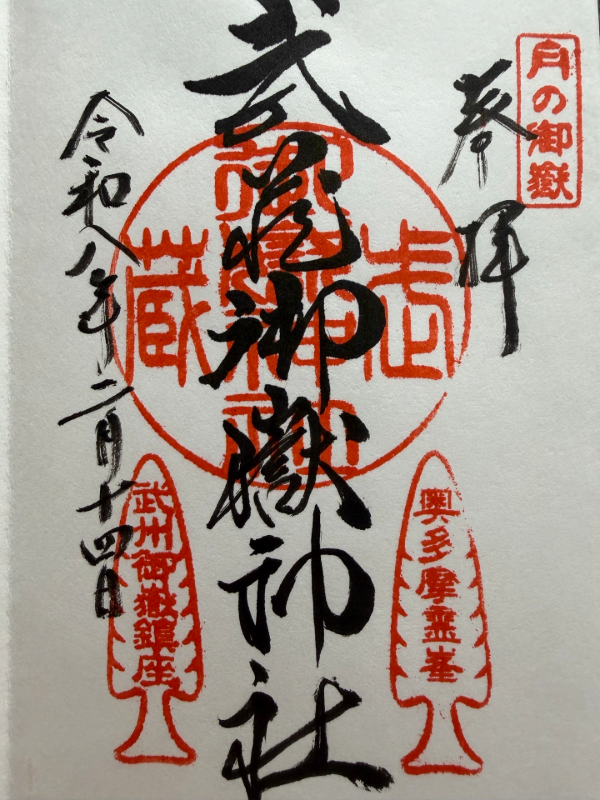 月の御嶽
奉拝
武蔵御嶽神社
武蔵
御嶽神社
奥多摩霊峯
武州御嶽鎮座
令和八年二月十四日